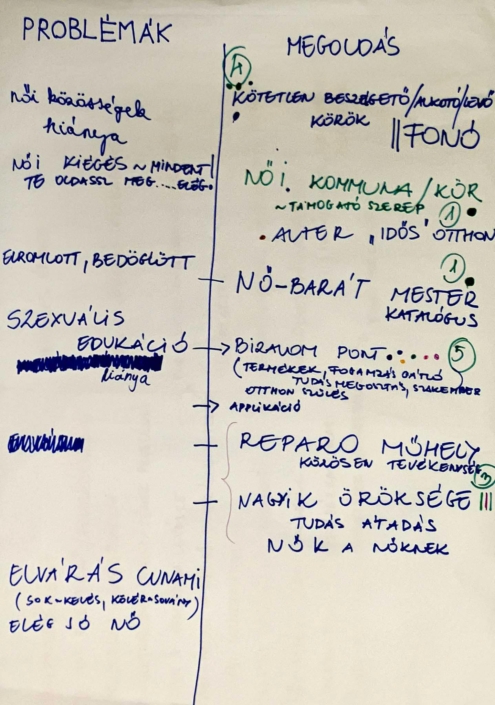 PROBLÉMÁK
női közösségek
hiánya
NŐI KIÉGÉS ~ MINDENT
TE OLDASSZ MEG.... ELÉG!
ELROMLOTT, BEDÖGLÖTT
SZEXUÁLIS
EDUKÁCIÓ
hiánya
ELVÁRÁS CUNAMI
(SOK-KEVÉS, KÖVÉR-SOVÁNY)
ELÉG JÓ NŐ
MEGOLDÁS
4
KÖTETLEN BESZÉLGETŐ/ALKOTÓ/LEVŐ
KÖRÖK
|| FONÓ
NŐI KOMMUNA/KÖR
~ TÁMOGATÓ SZEREP 1
ALTER "IDŐS" OTTHON
1
NŐ-BARÁT MESTER
KATALÓGUS
→ BIZALOM PONT 5
(TERMÉKEK, FOGAMZÁSGÁTLÓ
TUDÁSMEGOSZTÁS, SZAKEMBER
OTTHON SZÜLÉS
→ APPLIKÁCIÓ
REPARO MŰHELY
KÖZÖSEN TEVÉKENYSÉG
3
NAGYIK ÖRÖKSÉGE |||
TUDÁS ÁTADÁS
NŐK A NŐKNEK